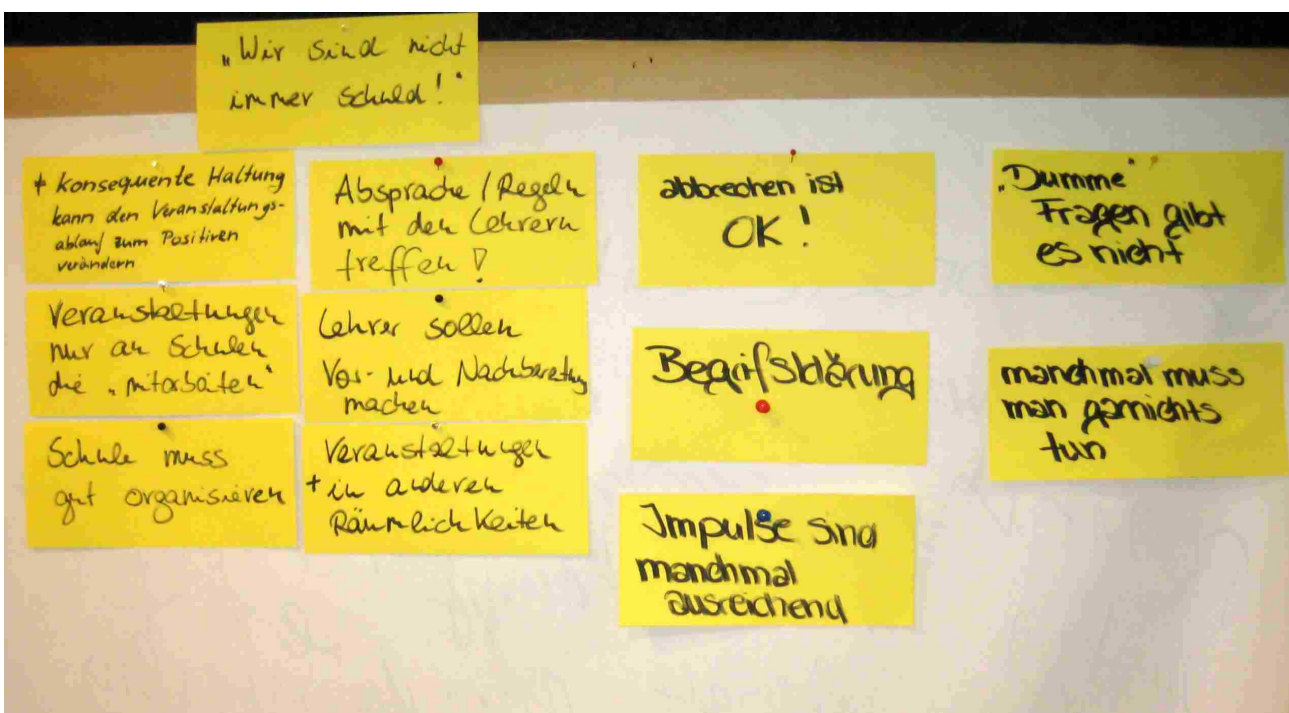 „Wir sind nicht
immer schuld!“
+ Konsequente Haltung
kann den Veranstaltungs-
ablauf zum Positiven
verändern
Veranstaltungen
nur an Schulen
die „mitarbeiten“
Schule muss
gut organisieren
Absprache / Regeln
mit den Lehrern
treffen!
Lehrer sollen
Vor- und Nachbereitung
machen
Veranstaltungen
+ in anderen
Räumlichkeiten
abbrechen ist
OK!
Begrifsklärung
Impulse sind
manchmal
ausreichend
„Dumme“
Fragen gibt
es nicht
manchmal muss
man garnichts
tun